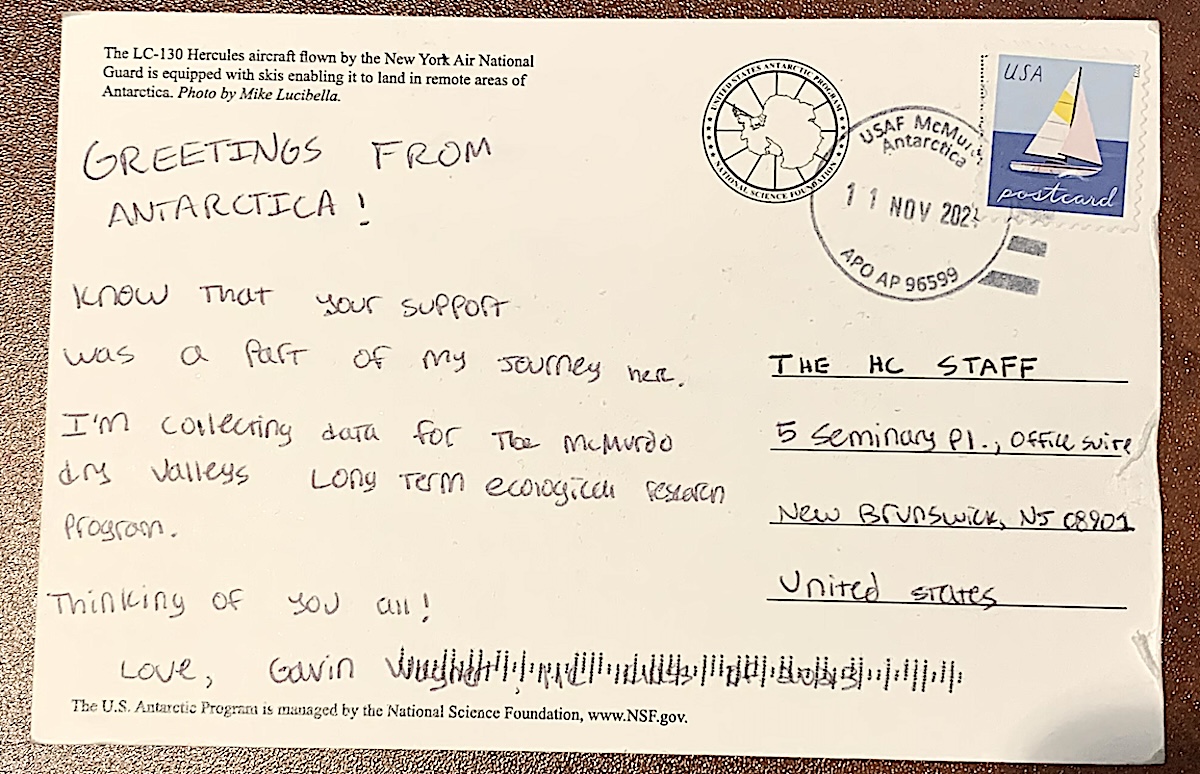 The LC-130 Hercules aircraft flown by the New York Air National
Guard is equipped with skis enabling it to land in remote areas of
Antarctica. Photo by Mike Lucibella.
GREETINGS FROM
ANTARCTICA!
Know that your support
was a part of my journey here.
I'm collecting data for the McMurdo
dry valleys Long Term ecological research
program.
Thinking of you all!
Love, Gavin
The U.S. Antarctic Program is managed by the National Science Foundation, www.NSF.gov.
UNITED STATES ANTARCTIC PROGRAM
NATIONAL SCIENCE FOUNDATION
USAF McMur
Antarctica
11 NOV 202
APO AP 96599
USA
postcard
THE HC STAFF
5 Seminary Pl., Office suite
New Brunswick, NJ 08901
United States